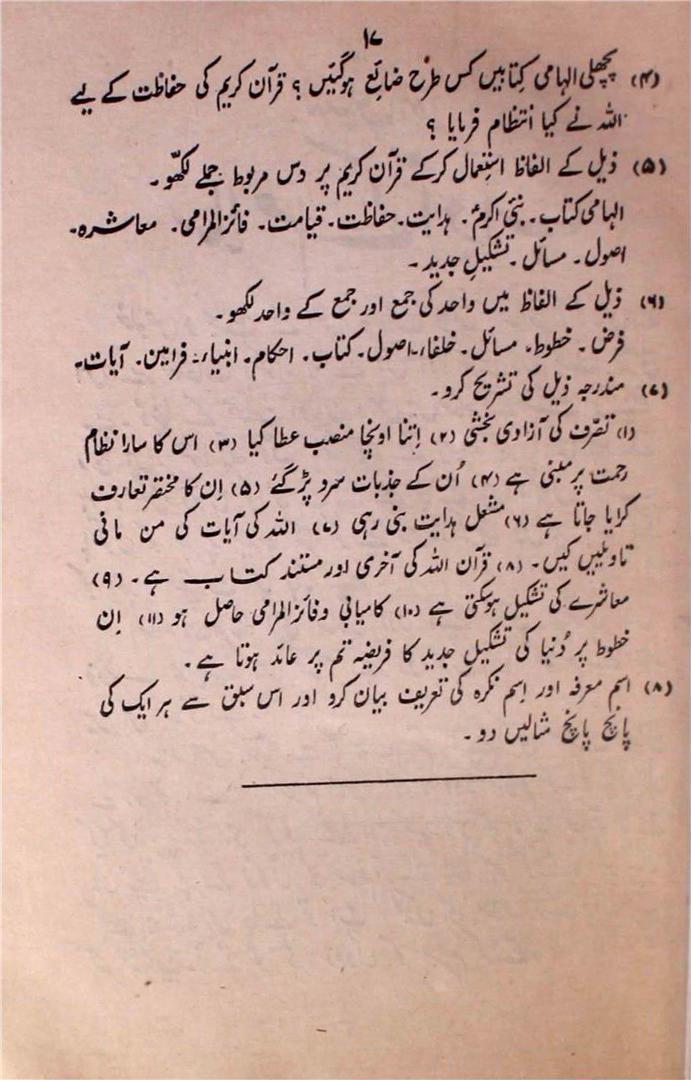 ۱۷
(۴) پچھلی الہامی کتابیں کس طرح ضائع ہوگئیں ؟ قرآن کریم کی حفاظت کے لیے
اللہ نے کیا انتظام فرمایا ؟
(۵) ذیل کے الفاظ استعمال کرکے قرآن کریم پر دس مربوط جملے لکھو۔
الہامی کتاب۔ نبیٔ اکرمؐ۔ ہدایت۔ حفاظت۔ قیامت۔ فائزالمرامی۔ معاشرہ۔
اصول۔ مسائل۔ تشکیلِ جدید۔
(۶) ذیل کے الفاظ میں واحد کی جمع اور جمع کے واحد لکھو۔
فرض۔ خطوط۔ مسائل۔ خلفاء۔ اصول۔ کتاب۔ احکام۔ انبیاء۔ فرامین۔ آیات۔
(۷) مندرجہ ذیل کی تشریح کرو۔
(۱) تصرّف کی آزادی بخشی (۲) اِتنا اونچا منصب عطا کیا (۳) اس کا سارا نظام
رحمت پر مبنی ہے (۴) اُن کے جذبات سرد پڑ گئے (۵) اِن کا مختصر تعارف
کرایا جاتا ہے (۶) مشعل ہدایت بنی رہی (۷) اللہ کی آیات کی من مانی
تاویلیں کیں۔ (۸) قرآن اللہ کی آخری اور مستند کتاب ہے۔ (۹)
معاشرے کی تشکیل ہوسکتی ہے (۱۰) کامیابی و فائزالمرامی حاصل ہو (۱۱) اِن
خطوط پر دُنیا کی تشکیلِ جدید کا فریضہ تم پر عائد ہوتا ہے۔
(۸) اسم معرفہ اور اِسم نکرہ کی تعریف بیان کرو اور اس سبق سے ہر ایک کی
پانچ پانچ مثالیں دو۔